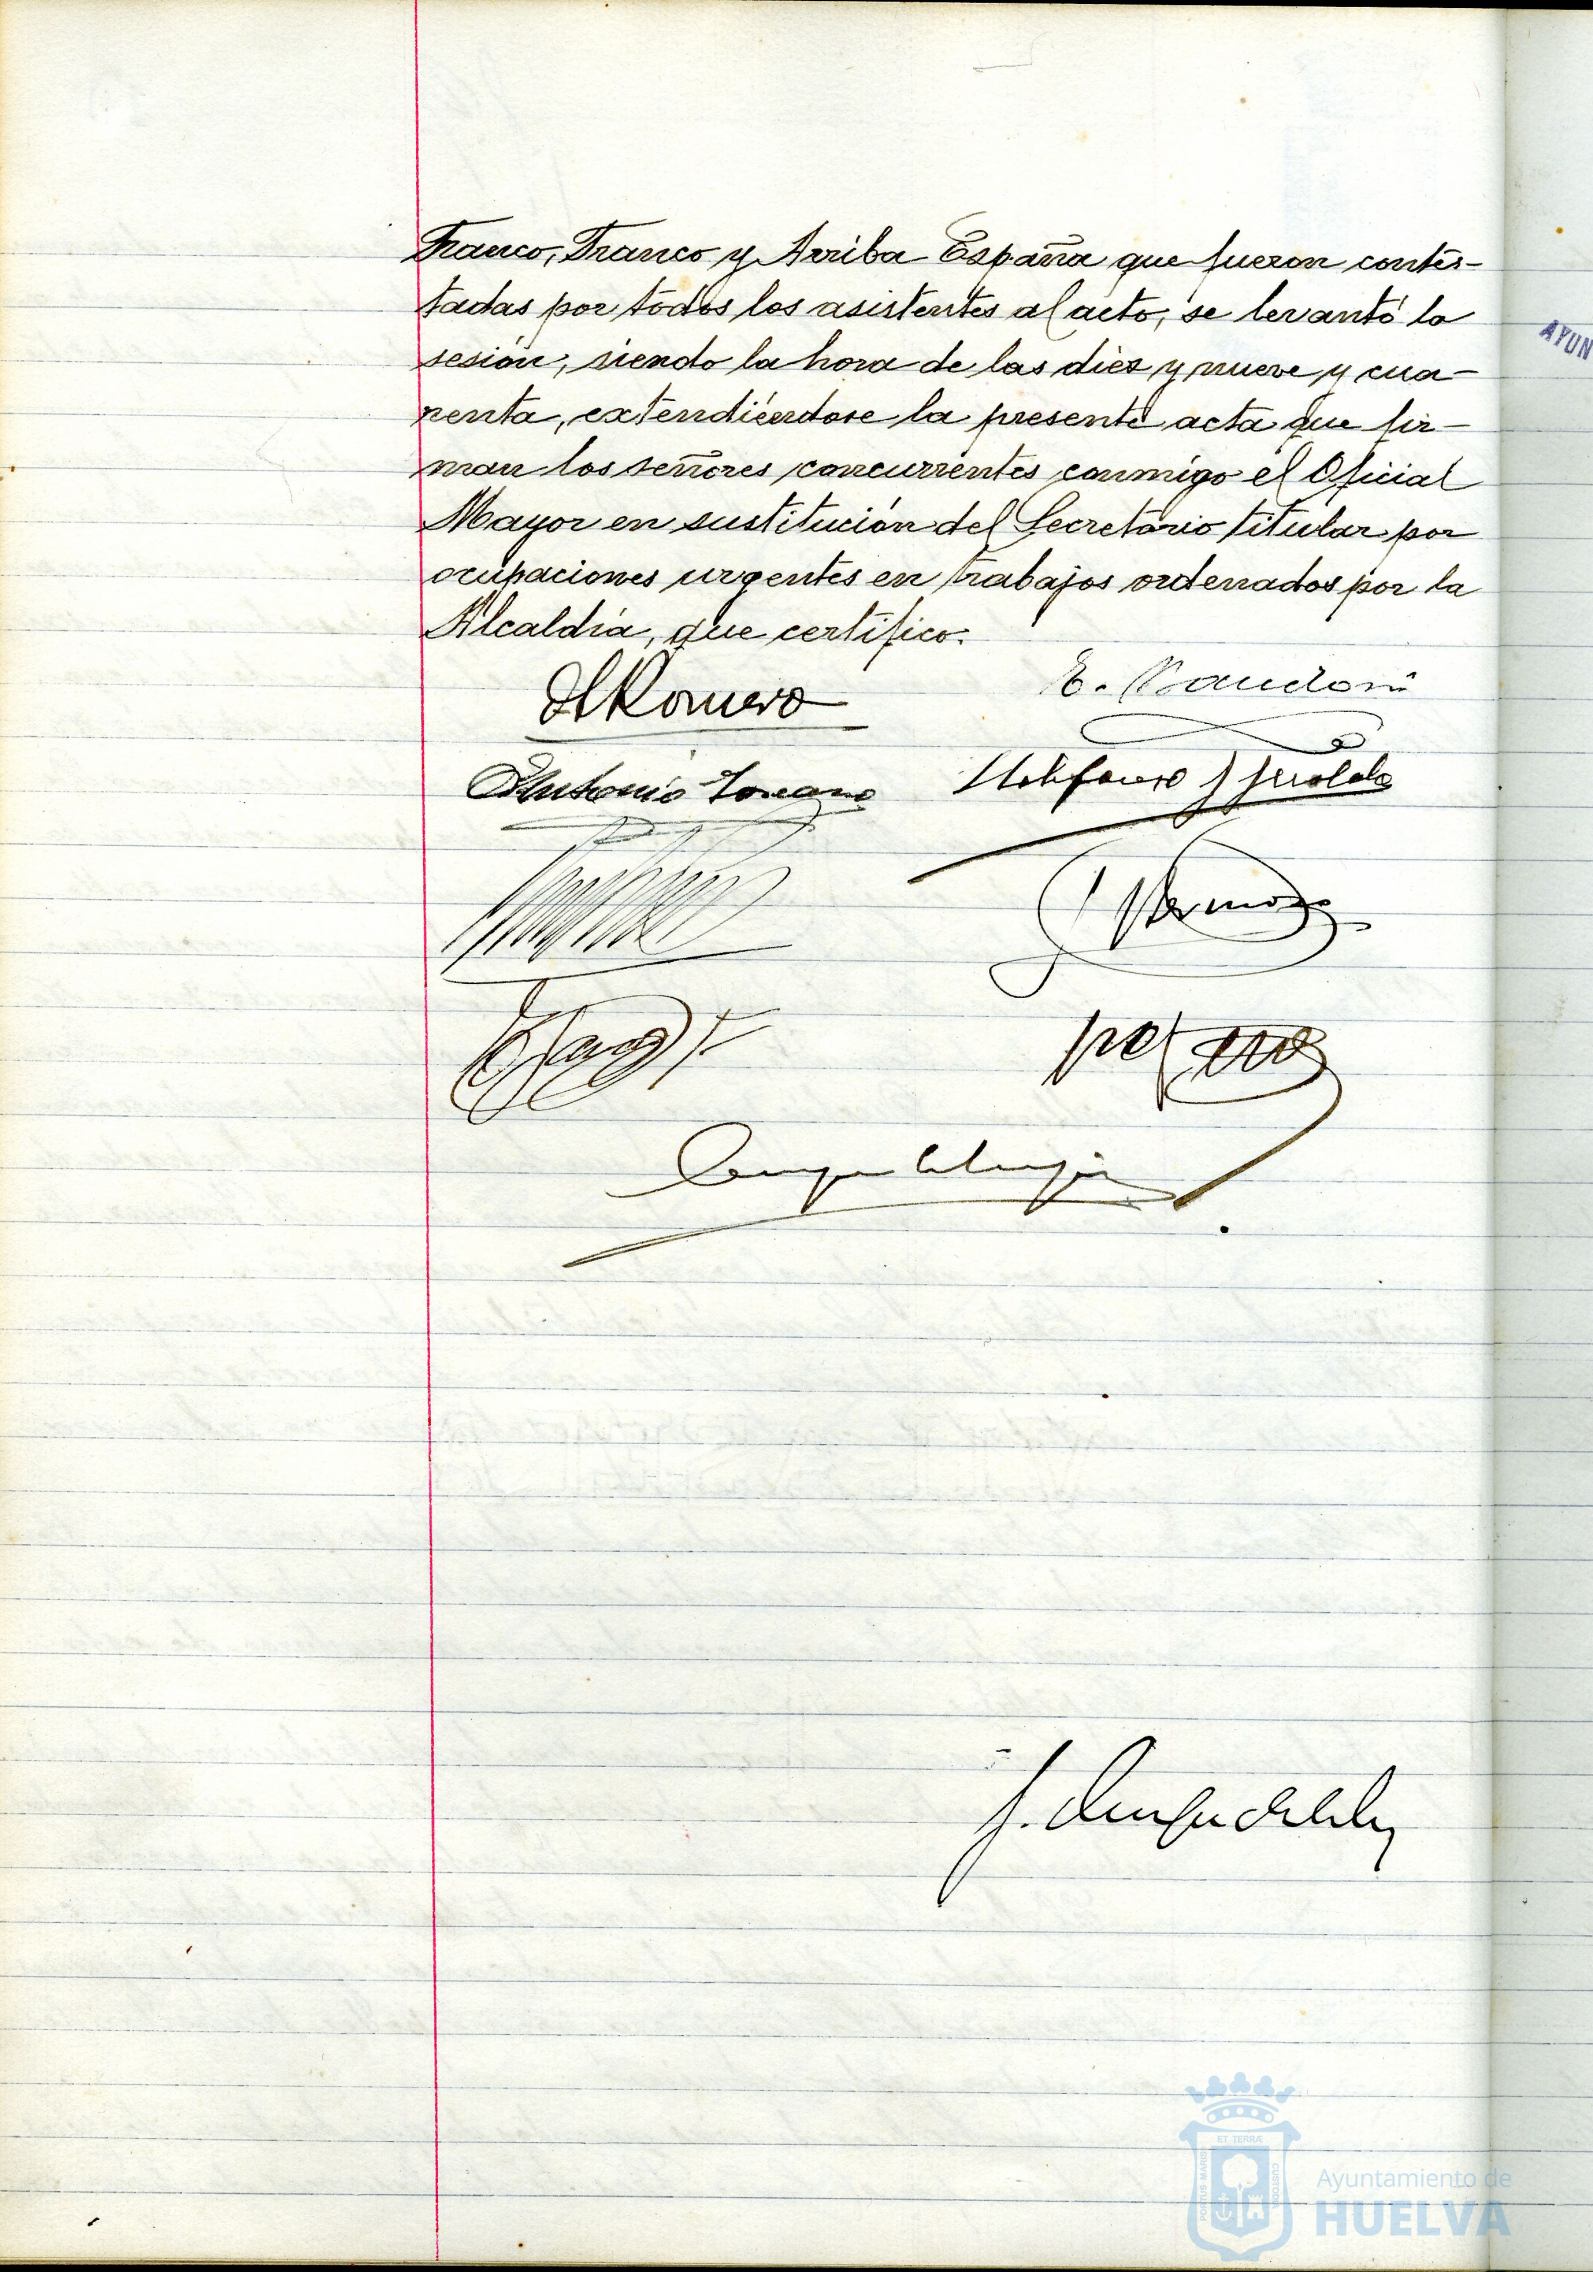 Franco, Franco y Arriba España que fueron contes-
tadas por todos los asistentes al acto, se levantó la
sesión, siendo la hora de las diez y nueve y cua-
renta, extendiéndose la presente acta que fir-
man los señores concurrentes conmigo el Oficial
Mayor en sustitución del Secretario titular por
ocupaciones urgentes en trabajos ordenados por la
Alcaldía, que certifico.
Romero
Antonio Toscano
AYUN
ET TERRÆ
PORTUS MARIS
CUSTODIA
Ayuntamiento de
HUELVA